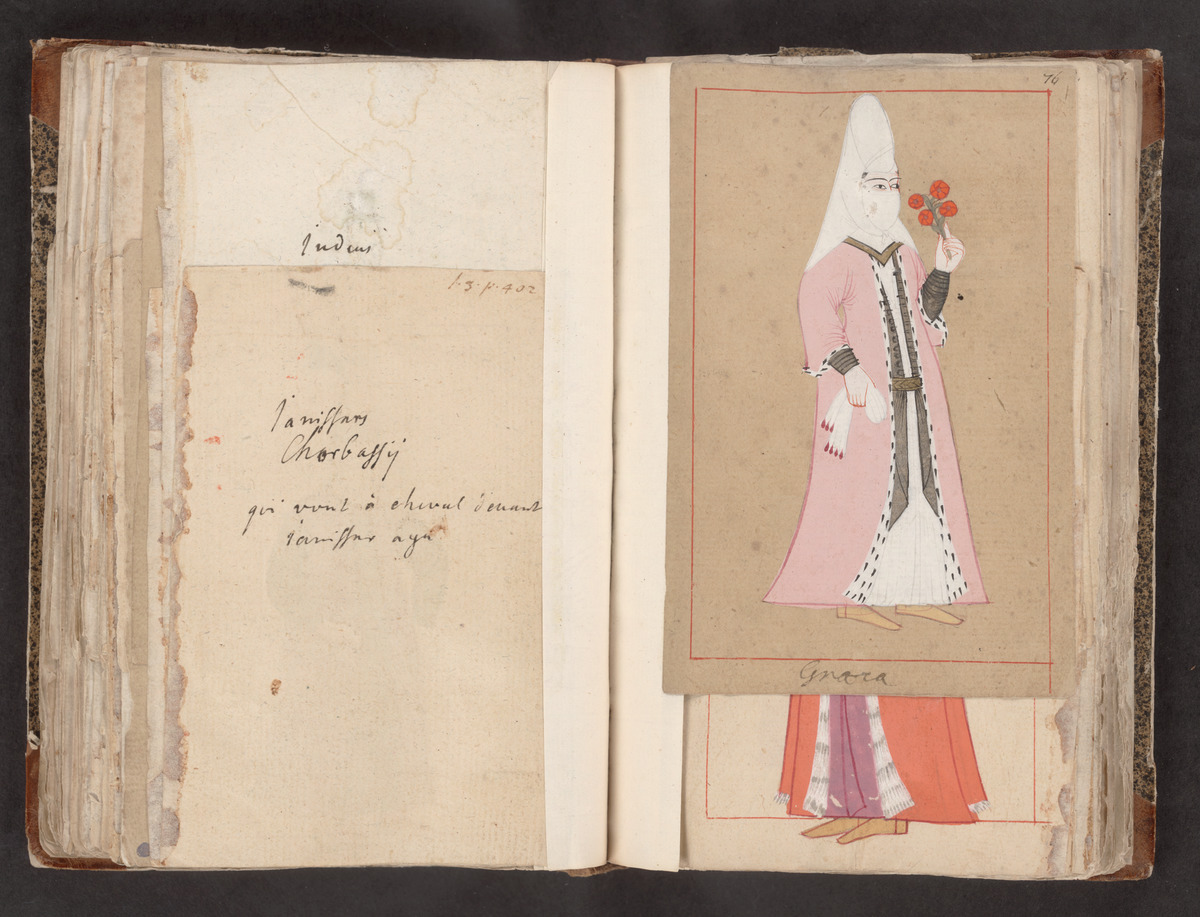 Judeus
l·3·p·402
Janissars
Chorbassÿ
qui vont à cheval devant
janissar aga
76
Græca